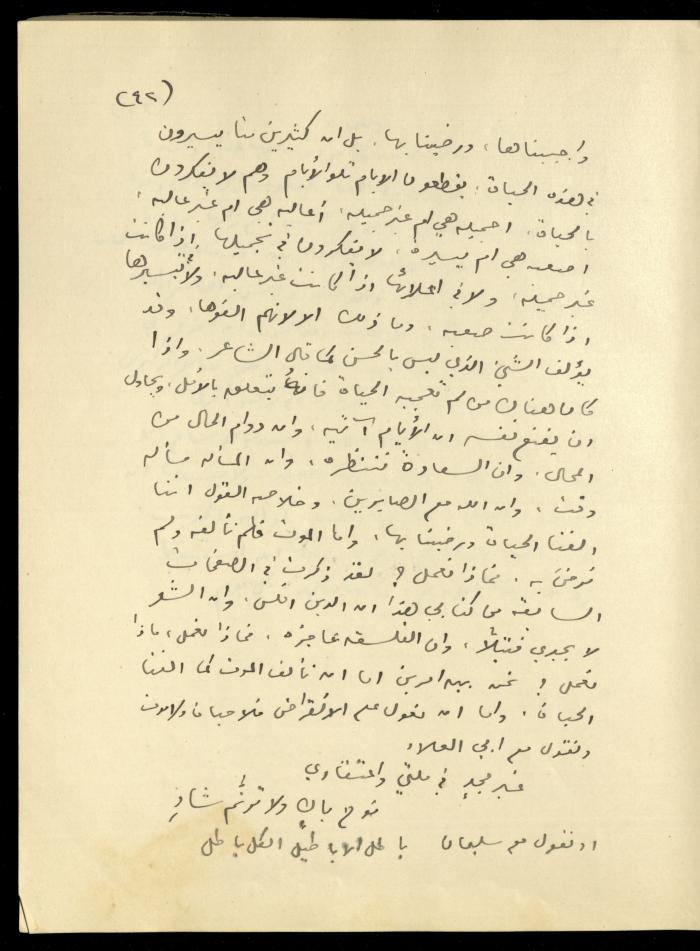 (٤٢)
واحببناها، ورضينا بها. بل ان كثيرين منا يسيرون
في هذه الحياة، يقطعون الايام تلو الأيام وهم لا يفكرون
بالحياة، اجميله هي ام غير جميله، أعاليه هي ام غير عاليه،
اصعبه هي ام يسيرة، لا يفكرون في تجميلها إذا كانت
غير جميله، ولا في اعلائها اذا كانت غير عاليه، ولا تيسيرها
اذا كانت صعبه، وما ذلك الا لانهم الفوها، وقد
يؤلف الشيئ الذي ليس بالحسن كما قال الشاعر. واذا
كان هناك من لم تعجبه الحياة فانهُ يتعلق بالأمل، ويحاول
ان يقنع نفسه ان الأيام آتيه، وان دوام الحال من
المحال، وان السعادة تنتظره، وان المسأله مسأله
وقت، وان الله مع الصابرين. وخلاصه القول اننا
الفنا الحياة ورضينا بها، واما الموت فلم نألفه ولم
نرضَ به. فماذا نعمل؟ لقد ذكرت في الصفحات
السابقه من كتابي هذا ان الدين افلس، وان الشعر
لا يجدي فتيلًا، وان الفلسفه عاجزه، فماذا نعمل، ماذا
نعمل؟ نحن بين امرين اما ان نألف الموت كما الفنا
الحياة، واما ان نعول علي الانقراض فلا حياة ولا موت
ونقول مع ابي العلاء
غير مجدٍ في ملتي واعتقادي
نوح باكٍ ولا ترنّم شادِ
او نقول مع سليمان باطل الاباطيل الكل باطل